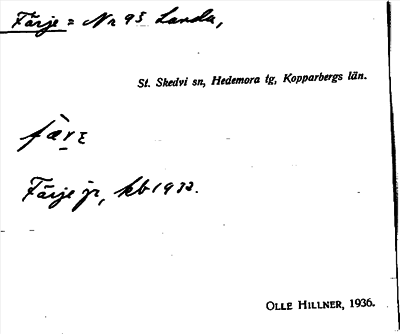 Färje = Nr 95 Landa,
St. Skedvi sn, Hedemora tg, Kopparbergs län.
fær̲ɛ
Färje jr, kb 1932.
OLLE HILLNER, 1936.